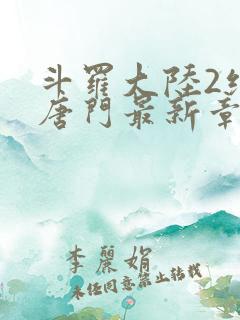 斗羅大陸2
唐門最新章
李麗娟
未經同意禁止转載